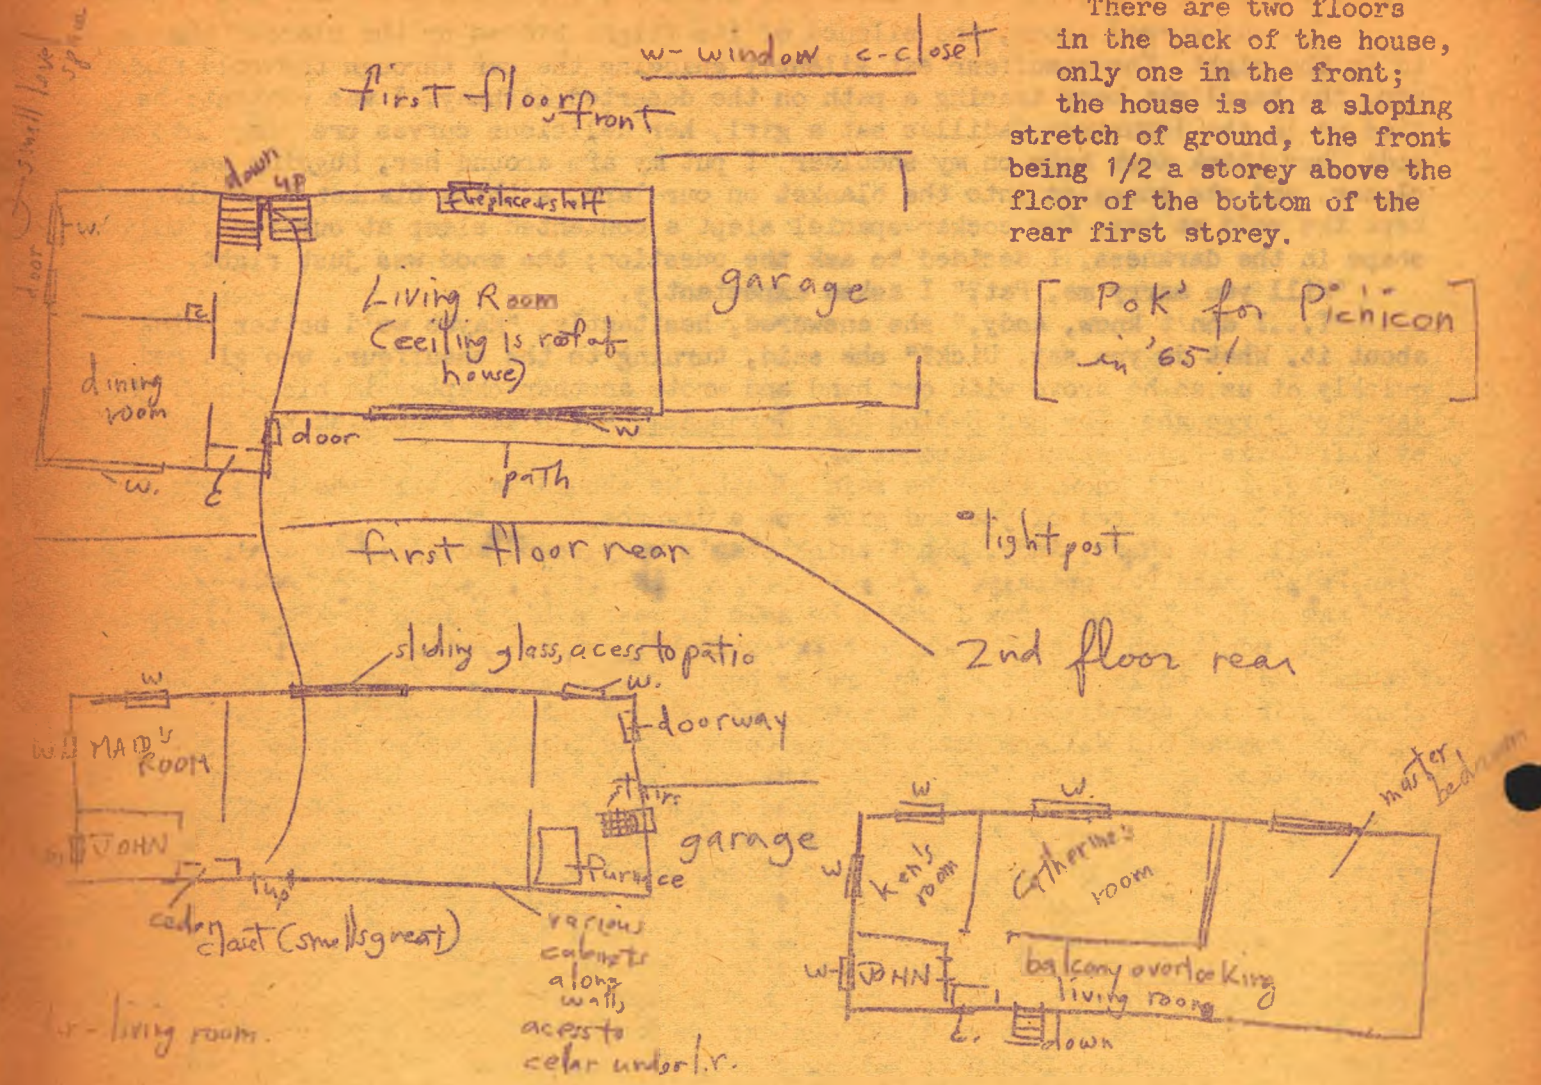 There are two floors
in the back of the house,
only one in the front;
the house is on a sloping
stretch of ground, the front
being 1/2 a storey above the
floor of the bottom of the
rear first storey.
w- window c-closet
first floor front
small
door
down up
fireplace & shelf
w.
Living Room
(ceeiling is roof of
house)
garage
[PoK' for Picnicon
in '65!]
c
dining
room
door
w
path
w.
c
first floor rear
light post
2nd floor rear
sliding glass, acess to patio
w
w.
doorway
w
MAID'S
ROOM
stairs
garage
JOHN
furnace
up
cedar
closet (smells great)
various
cabinets
along
wall,
acess to
celar under l.r.
l.r - living room.
master
bedroom
w
w.
w
Ken's
room
Catherine's
room
w
JOHN
balcony overlooking
living room
c.
down